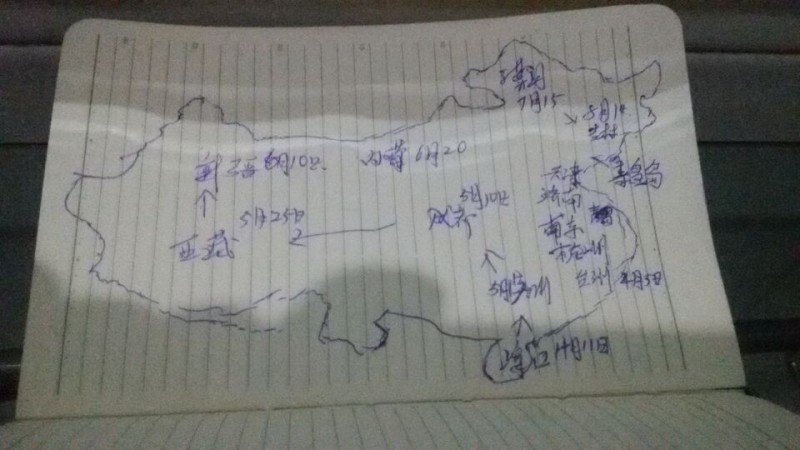 7月15
8月14
新疆6月10日
内蒙 6月20
天津
济南
秦皇岛
5月10日
成都
南京
杭州
5月25日
西藏
台州 4月3日
海口 4月11日